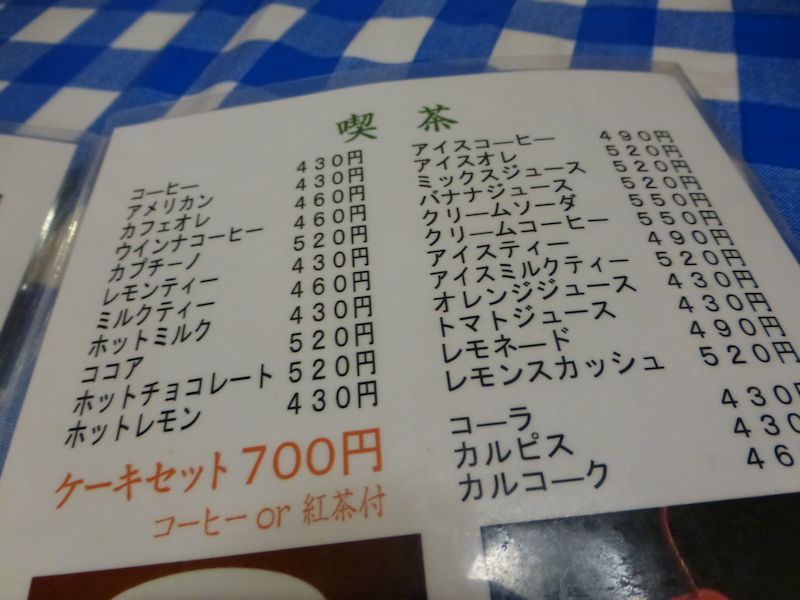 喫 茶
コーヒー 430円
アメリカン 430円
カフェオレ 460円
ウインナコーヒー 460円
カプチーノ 520円
レモンティー 430円
ミルクティー 460円
ホットミルク 430円
ココア 520円
ホットチョコレート 520円
ホットレモン 430円
ケーキセット 700円
コーヒー or 紅茶付
アイスコーヒー 490円
アイスオレ 520円
ミックスジュース 520円
バナナジュース 520円
クリームソーダ 550円
クリームコーヒー 550円
アイスティー 490円
アイスミルクティー 520円
オレンジジュース 430円
トマトジュース 430円
レモネード 490円
レモンスカッシュ 520円
コーラ 430
カルピス 430
カルコーク 46